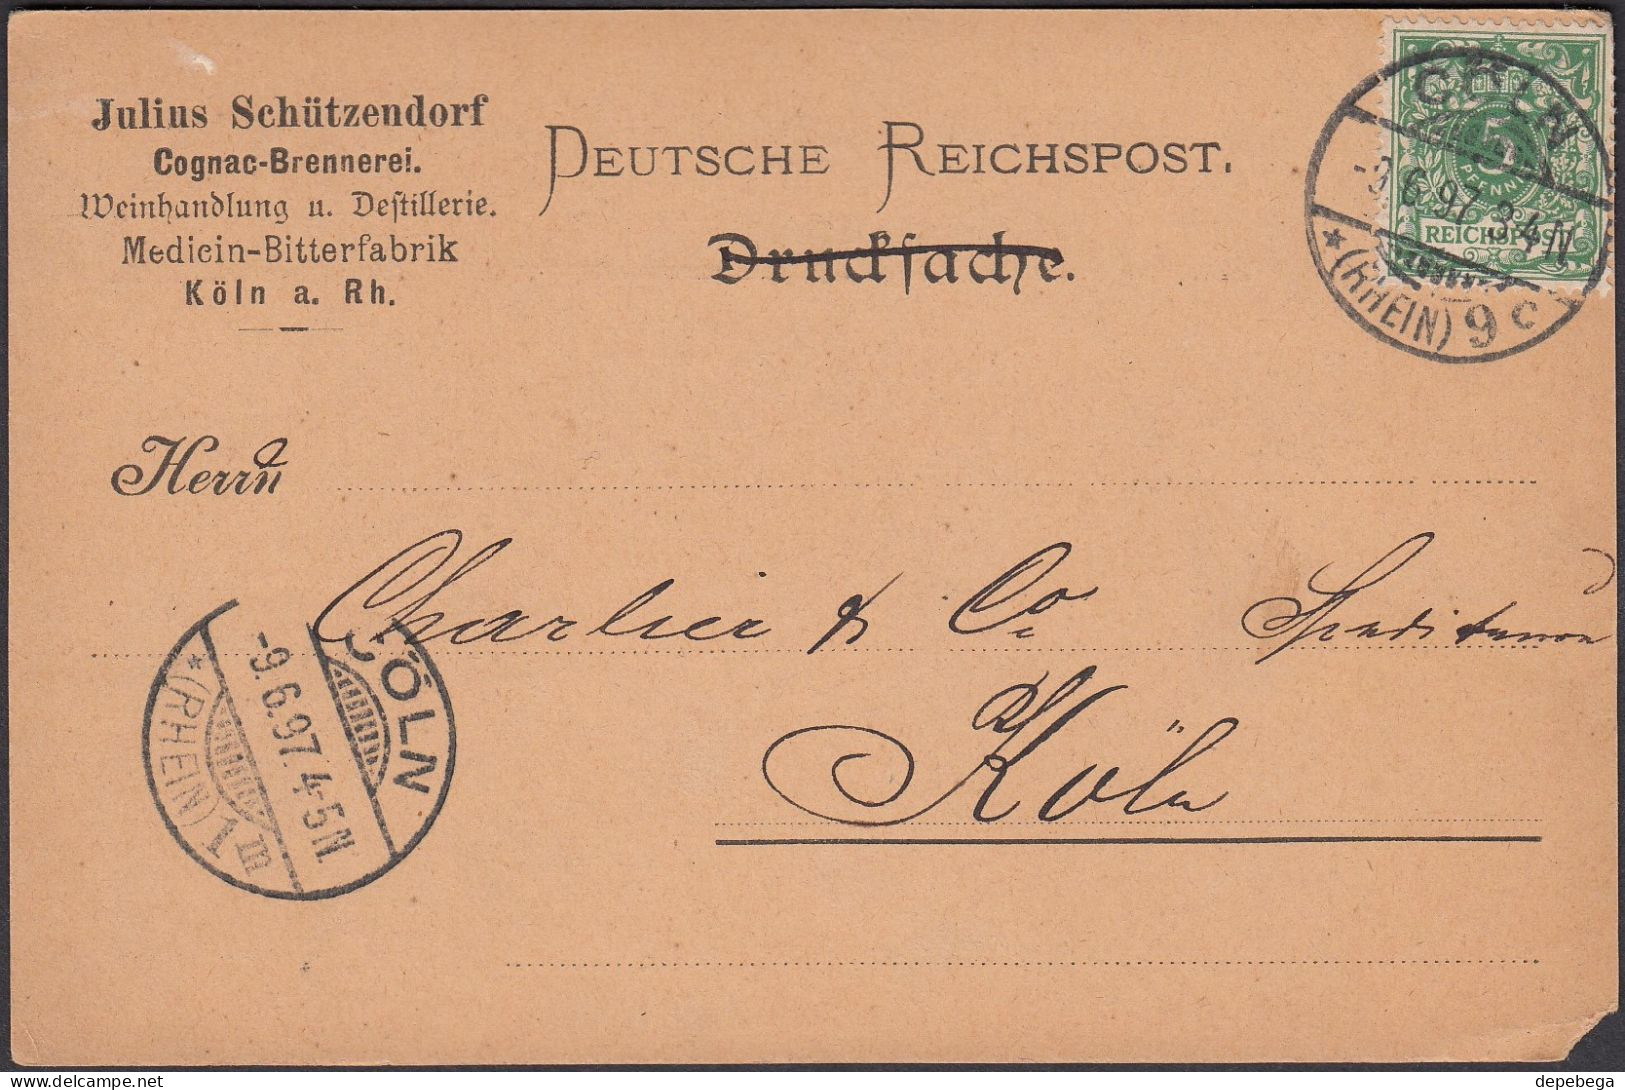 Julius Schützendorf
Cognac-Brennerei.
Weinhandlung u. Destillerie.
Medicin-Bitterfabrik
Köln a. Rh.
DEUTSCHE REICHSPOST.
Drucksache.
5
PFENNIG
REICHSPOST
CÖLN
6.97. 3-4 N
* (RHEIN) 9 c
Herrn
Charlier & Co. Spediteure
Köln
CÖLN
-9.6.97. 4-5N.
* (RHEIN) 1 m
depebega
delcampe.net